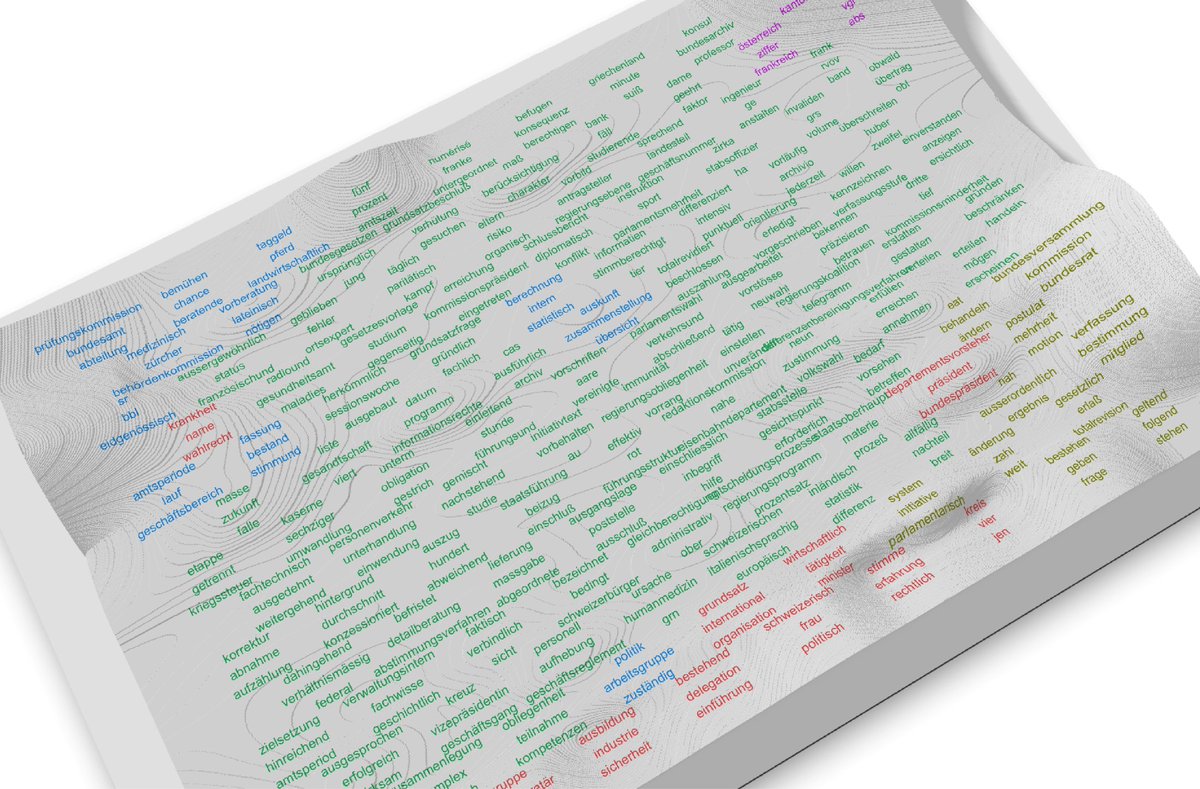 konsul
kanton
bundesarchiv
professor
österreich
ziffer
frankreich
abs
griechenland
minute
suiß
dame
geehrt
faktor
frank
rvov
band
obwald
übertrag
obt
befugen
konsequenz
berechtigen
bank
fäll
studierende
sprechend
landesteil
geschäftsnummer
ingenieur
ge
anstalten
invaliden
grs
volume
überschreiten
huber
zweifel
einverstanden
anzeigen
ersichtlich
humérisé
franke
untergeordnet
maß
berücksichtigung
charakter
vorbild
antragsteller
regierungsebene
instruktion
zirka
stabsoffizier
ha
vorläufig
archivio
jederzeit
willen
kennzeichnen
verfassungsstufe
dritte
tief
kommissionsminderheit
gründen
beschränken
handeln
fünf
prozent
amtszeit
grundsatzbeschluß
bundesgesetzen
ursprünglich
jung
verhütung
gesuchen
eltern
risiko
organisch
schlussbericht
diplomatisch
konflikt
informalien
stimmberechtigt
tier
sport
parlamentsmehrheit
differenziert
intensiv
punktuell
orientierung
erledigt
totalrevidiert
beschlossen
auszahlung
ausgearbeitet
vorgeschrieben
bekennen
präzisieren
betrauen
erstatten
gestalten
verteilen
erteilen
mögen
erscheinen
bundesversammlung
kommission
bundesrat
taggeld
pferd
landwirtschaftlich
bemühen
chance
beratende
vorberatung
lateinisch
nötigen
prüfungskommission
bundesamt
abteilung
medizinisch
zürcher
behördenkommission
sr
bbl
eidgenössisch
krankheit
name
wahlrecht
fassung
bestand
stimmund
amtsperiode
lauf
geschäftsbereich
täglich
paritätisch
kampf
erreichung
kommissionspräsident
eingetreten
gesetzesvorlage
geblieben
fehler
ortsexpert
studium
gegenseitig
grundsatzfrage
gründlich
fachlich
aussergewöhnlich
status
französischund
radiound
gesundheitsamt
maladies
herkömmlich
sessionswoche
ausgebaut
datum
programm
informationsrechte
einleitend
stunde
liste
gesandtschaft
viert
unterm
obligation
gestrich
berechnung
intern
statistisch
auskunft
zusammenstellung
übersicht
cas
ausführlich
archiv
vorschriften
aare
vereinigte
immunität
parlamentswahl
verkehrsund
abschließend
tätig
einstellen
unverändert
differenzenbereinigungsverfahren
neun
zustimmung
volkswahl
bedarf
vorsehen
betreffen
neuwahl
vorstösse
regierungskoalition
telegramm
erfüllen
erreichen
annehmen
eat
behandeln
ändern
postulat
mehrheit
motion
verfassung
bestimmung
mitglied
departementsvorsteher
präsident
bundespräsident
nah
ausserordentlich
ergebnis
gesetzlich
erlaß
totalrevision
geltend
folgend
stehen
änderung
zahl
weit
bestehen
geben
frage
initiativtext
vorbehalten
regierungsobliegenheit
vorrang
redaktionskommission
nahe
eisenbahndepartement
stabsstelle
gesichtspunkt
erforderlich
staatsoberhaupt
materie
prozeß
allfällig
nachteil
breit
au
effektiv
rot
führungsstruktur
einschliesslich
inbegriff
hilfe
entscheidungsprozess
regierungsprogramm
prozentsatz
inländisch
statistik
differenz
system
initiative
parlamentarisch
kreis
vier
jen
masse
zukunft
falle
kaserne
sechziger
umwandlung
personenverkehr
unterhandlung
einwendung
auszug
hundert
abweichend
lieferung
massgabe
abgeordnete
führungsund
gemischt
nachstehend
studie
staatsführung
beizug
einschluß
ausgangslage
poststelle
ausschluß
gleichberechtigung
administrativ
ober
schweizerischen
italienischsprachig
europäisch
etappe
getrennt
kriegssteuer
fachtechnisch
ausgedehnt
weitergehend
hintergrund
durchschnitt
konzessioniert
befristet
detailberatung
abstimmungsverfahren
faktisch
verbindlich
sicht
bezeichnet
bedingt
schweizerbürger
personell
aufhebung
ursache
humanmedizin
grn
wirtschaftlich
tätigkeit
minister
stimme
erfahrung
rechtlich
grundsatz
international
organisation
schweizerisch
frau
politisch
korrektur
abnahme
aufzählung
dahingehend
verhältnismässig
federal
verwaltungsintern
fachwisse
geschichtlich
kreuz
vizepräsidentin
geschäftsreglement
geschäftsgang
obliegenheit
teilnahme
kompetenzen
politik
arbeitsgruppe
zuständig
bestehend
delegation
einführung
ausbildung
industrie
sicherheit
zielsetzung
hinreichend
amtsperiod
ausgesprochen
erfolgreich